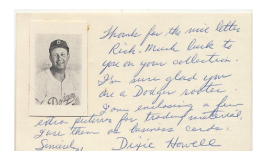 Thanks for the nice letter
Rick. Much luck to
you on your collection.
I'm sure glad you
are a Dodger rooter.
I am enclosing a few
extra pictures for trading material.
I use them as business cards.
Sincerely, Dixie Howell